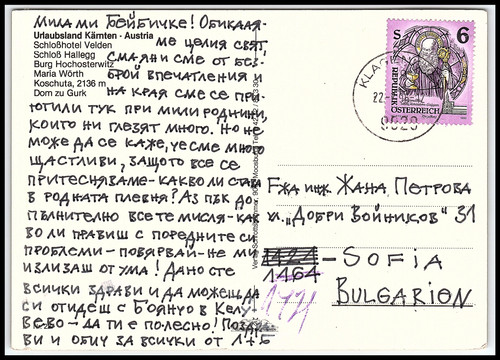 МИЛА МИ БЕЙБИЧКЕ! ОБИКАЛЯ-
Urlaubsland Kärnten · Austria
МЕ ЦЕЛИЯ СВЯТ,
Schloßhotel Velden
Schloß Hallegg
СМАЯНИ СМЕ ОТ БЕЗ-
Burg Hochosterwitz
БРОЙ ВПЕЧАТЛЕНИЯ И
Maria Wörth
Koschuta, 2136 m
НА КРАЯ СМЕ СЕ ПРИ-
Dom zu Gurk
ЮТИЛИ ТУК ПРИ МИЛИ РОДНИНИ,
КОИТО НИ ГЛЕЗЯТ МНОГО. НО НЕ
МОЖЕ ДА СЕ КАЖЕ, ЧЕ СМЕ МНОГО
ЩАСТЛИВИ, ЗАЩОТО ВСЕ СЕ
ПРИТЕСНЯВАМЕ - КАКВО ЛИ СТАВА
В РОДНАТА ПЛЕВНЯ? АЗ ПЪК ДО-
ПЪЛНИТЕЛНО ВСЕ ТЕ МИСЛЯ - КАК-
ВО ЛИ ПРАВИШ С ПОРЕДНИТЕ СИ
ПРОБЛЕМИ - ПОВЯРВАЙ - НЕ МИ
ИЗЛИЗАШ ОТ УМА! ДАНО СТЕ
ВСИЧКИ ЗДРАВИ И ДА МОЖЕШ ДА
СИ ОТИДЕШ С БОЯНЧО В КЕЛУ-
ВЕВО - ДА ТИ Е ПОЛЕСНО! ПОЗДРА-
ВИ И ОБИЧ ЗА ВСИЧКИ ОТ Л+Б
S 6
REPUBLIK
ÖSTERREICH
9520
Г-ЖА ИНЖ. ЖАНА ПЕТРОВА
УЛ. „ДОБРИ ВОЙНИКОВ" 31
1464 - SOFIA
BULGARIEN